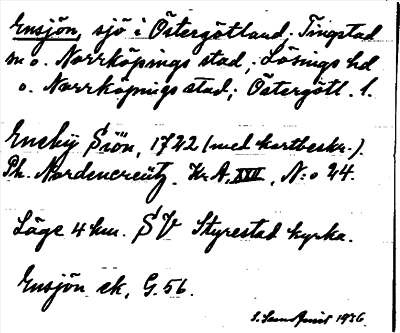 Ensjön, sjö i Östergötland; Tingstad
sn o. Norrköpings stad; Lösings hd
o. Norrköpings stad; Östergötl. l.
Eneby Siön, 1722 (med kartbeskr.).
Ph. Nordencreütz. Kr. A, XVI, N:o 24.
Läge 4 km. SV Styrestad kyrka.
Ensjön ek. G. 56.
1936.